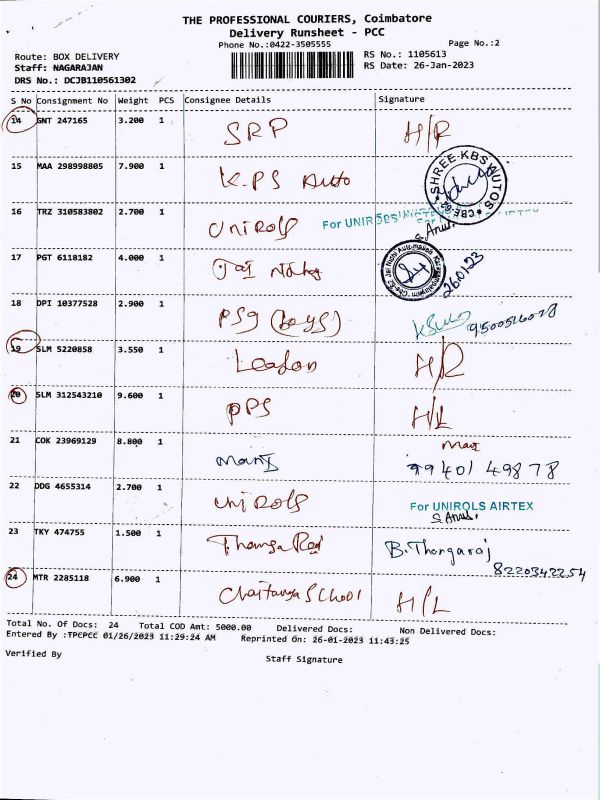 THE PROFESSIONAL COURIERS, Coimbatore
Delivery Runsheet - PCC
Phone No.:0422-3505555
Page No.:2
Route: BOX DELIVERY
RS No.: 1105613
Staff: NAGARAJAN
RS Date: 26-Jan-2023
DRS No.: DCJB110561302
S No Consignment No Weight PCS Consignee Details Signature
14 GNT 247165 3.200 1 SRP H/R
15 MAA 298998805 7.900 1 K.PS Auto SHREE-KBS AUTOS
16 TRZ 310583802 2.700 1 UNIROLS For UNIROLS
S. Anus.
17 PGT 6118182 4.000 1 26.01.23
18 DPI 10377528 2.900 1 PSG (boys)
19 SLM 5220858 3.550 1 H/R
20 SLM 312543210 9.600 1 PPS H/L
21 COK 23969129 8.800 1 Mani
99401 49878
22 DDG 4655314 2.700 1 UNIROLS For UNIROLS AIRTEX
S. Anus.
23 TKY 474755 1.500 1 B. Thangaraj
8220342254
24 MTR 2285118 6.900 1 Chaitanya School H/L
Total No. Of Docs: 24 Total COD Amt: 5000.00 Delivered Docs: Non Delivered Docs:
Entered By :TPCPCC 01/26/2023 11:29:24 AM Reprinted On: 26-01-2023 11:43:25
Verified By
Staff Signature